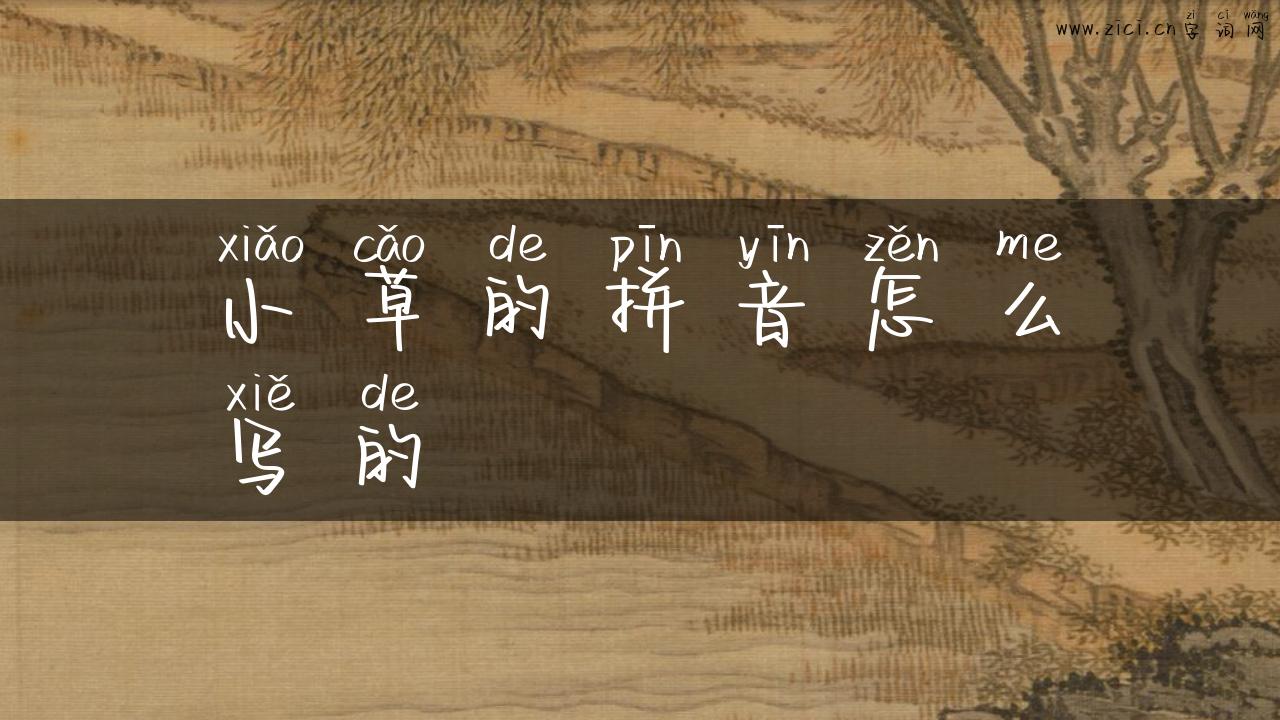 zì cí wǎng
www.zici.cn字词网
xiǎo cǎo de pīn yīn zěn me
小草的拼音怎么
xiě de
写的